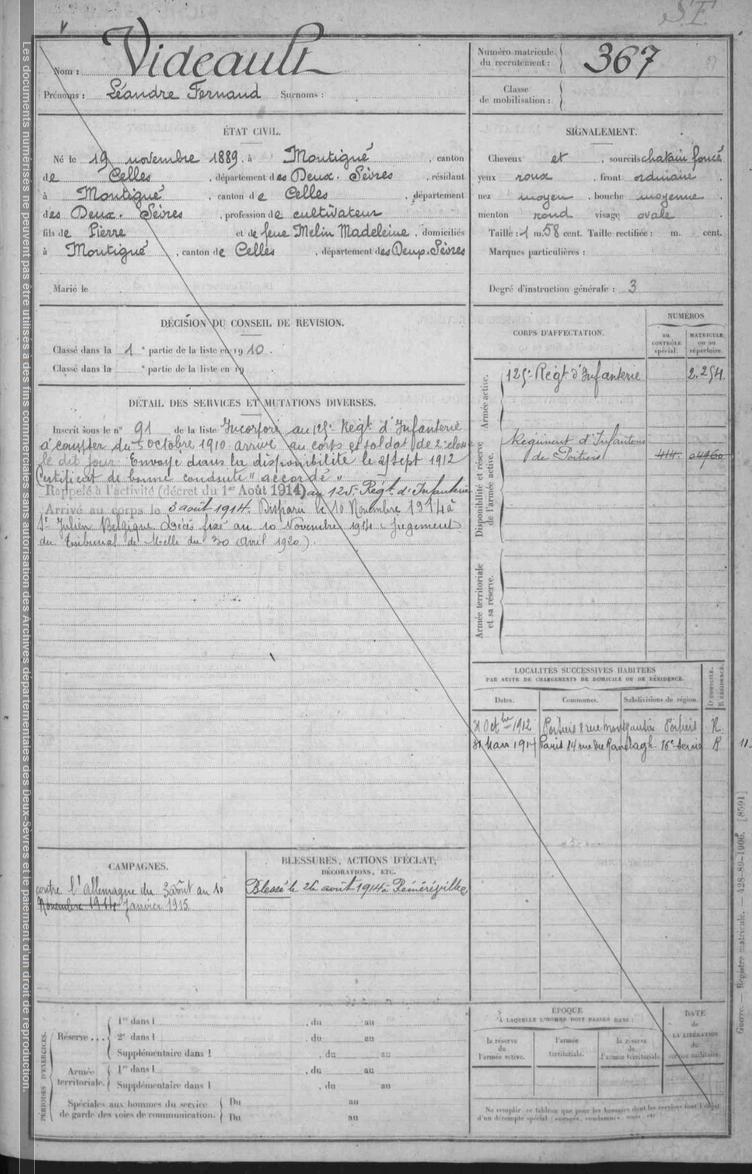 S.E
Nom : Videault
Prénoms : Léandre Fernand Surnoms :
Numéro matricule du recrutement : 367
Classe de mobilisation :
ÉTAT CIVIL.
Né le 19 novembre 1889, à Montigné, canton
de Celles, département des Deux-Sèvres, résidant
à Montigné, canton de Celles, département
des Deux-Sèvres, profession de cultivateur
fils de Pierre et de feue Melin Madeleine, domiciliés
à Montigné, canton de Celles, département des Deux-Sèvres
Marié le
SIGNALEMENT.
Cheveux et, sourcils chatain foncé
yeux roux, front ordinaire
nez moyen, bouche moyenne
menton rond visage ovale
Taille : 1 m. 58 cent. Taille rectifiée : m. cent.
Marques particulières :
Degré d'instruction générale : 3
DÉCISION DU CONSEIL DE REVISION.
Classé dans la 1e partie de la liste en 1910.
Classé dans la e partie de la liste en 19
DÉTAIL DES SERVICES ET MUTATIONS DIVERSES.
Inscrit sous le n° 91 de la liste Incorporé au 125e Régt d'Infanterie
à compter du 5 octobre 1910 arrivé au corps et soldat de 2e classe
le dit jour. Envoyé dans la disponibilité le 27 Sept 1912
Certificat de bonne conduite "accordé"
Rappelé à l'activité (décret du 1er Août 1914) au 125e Régt d'Infanterie
Arrivé au corps le 3 août 1914. Disparu le 10 Novembre 1914 à
St Julien Belgique. Décès fixé au 10 Novembre 1914 (jugement
du Tribunal de Melle du 30 Avril 1920).
CORPS D'AFFECTATION.
NUMÉROS
AU CONTRÔLE spécial.
MATRICULE OU AU répertoire.
Armée active.
125e Régt d'Infanterie 2.254
Disponibilité et réserve de l'armée active.
Régiment d'Infanterie
de Poitiers 414
Armée territoriale et sa réserve.
LOCALITÉS SUCCESSIVES HABITÉES
PAR SUITE DE CHANGEMENTS DE DOMICILE OU DE RÉSIDENCE.
Dates. Communes. Subdivisions de région. D. DOMICILE. R. RÉSIDENCE.
Octbre 1912 Poitiers 8 rue Poitiers R.
31 Mars 1914 Paris 14 rue du Ranelagh R
CAMPAGNES.
contre l'Allemagne du 3 août au 10
Novembre 1914 Janvier 1915
BLESSURES, ACTIONS D'ÉCLAT,
DÉCORATIONS, ETC.
Blessé le 26 août 1914 à Réméréville
PÉRIODES D'EXERCICES.
Réserve... 1re dans l , du au
2e dans l , du au
Supplémentaire dans l , du au
Armée territoriale. 1re dans l , du au
Supplémentaire dans l , du au
Spéciales aux hommes du service de garde des voies de communication. Du au
Du au
ÉPOQUE
À LAQUELLE L'HOMME DOIT PASSER DANS :
la réserve de l'armée active.
l'armée territoriale.
la réserve de l'armée territoriale.
DATE de LA LIBÉRATION du service militaire.
Ne remplir ce tableau que pour les hommes dont les services font l'objet
d'un décompte spécial
Guerre. — Registre matricule. — 428-89-1906. [8591]
Les documents numérisés ne peuvent pas être utilisés à des fins commerciales sans autorisation des Archives départementales des Deux-Sèvres et le paiement d'un droit de reproduction.